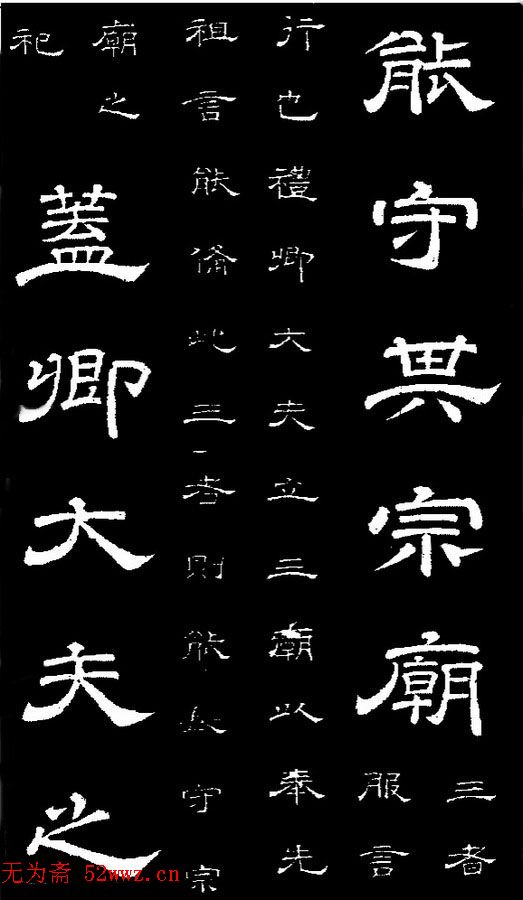 能守其宗廟
三者
服言
行也禮卿大夫立三廟以奉先
祖言能備此三者則能長守宗
廟之
祀
蓋卿大夫之
无为斋 52wwz.cn